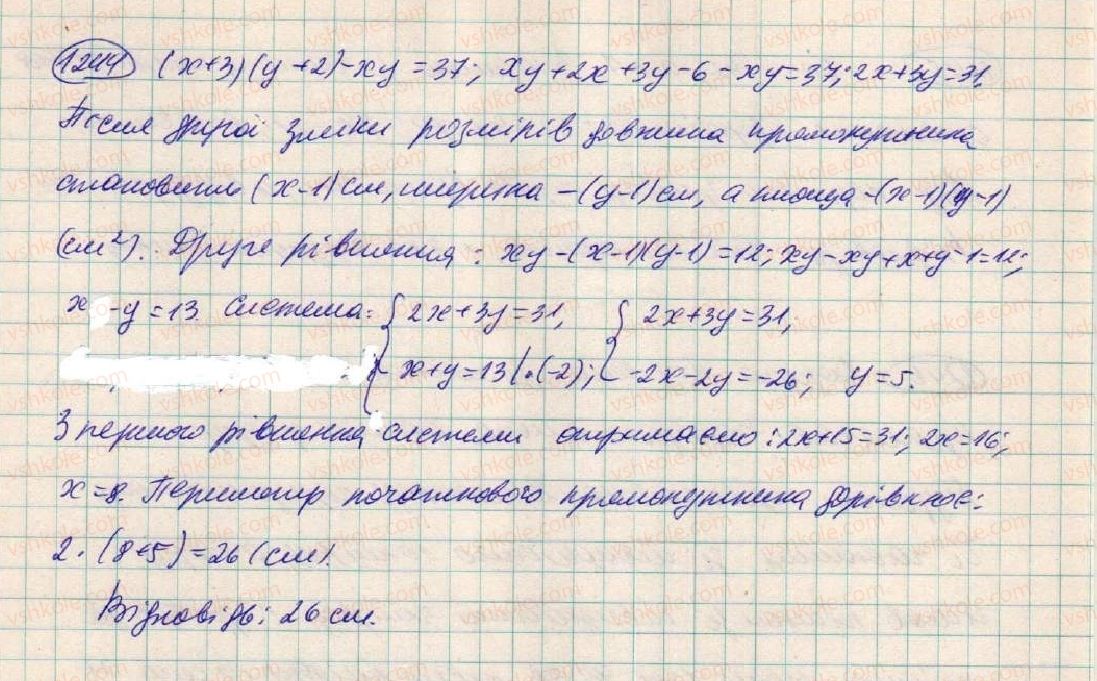 1244 (x+3)(y+2)-xy=37; xy+2x+3y-6-xy=37; 2x+3y=31.
Після другої зміни розмірів довжина прямокутника
становить (x-1) см, ширина -(y-1) см, а площа -(x-1)(y-1)
(см²). Друге рівняння: xy-(x-1)(y-1)=12; xy-xy+x+y-1=12;
x -y=13 Система: { 2x+3y=31, { 2x+3y=31,
x+y=13 |·(-2); -2x-2y=-26; y=5.
З першого рівняння системи отримаємо: 2x+15=31; 2x=16;
x=8. Периметр початкового прямокутника дорівнює:
2·(8+5)=26 (см).
Відповідь: 26 см.